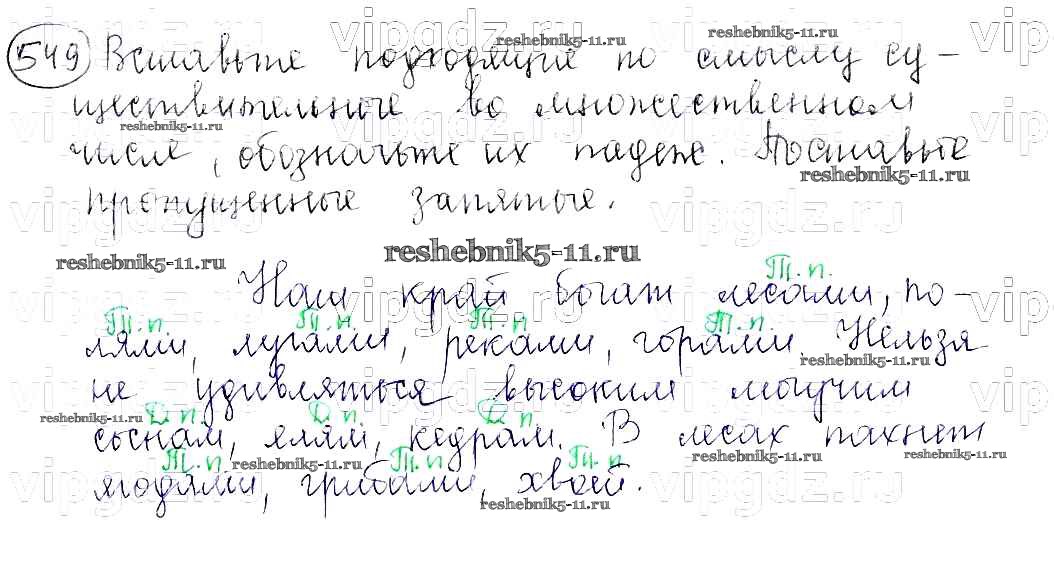 549 Вставьте подходящие по смыслу су-
ществительные во множественном
числе, обозначьте их падеж. Поставьте
пропущенные запятые.
reshebnik5-11.ru
Т.п.
Наш край богат лесами, по-
Т.п. Т.п. Т.п. Т.п.
лями, лугами, реками, горами. Нельзя
не удивляться высоким могучим
Д.п. Д.п. Д.п.
соснам, елям, кедрам. В лесах пахнет
Т.п. Т.п. Т.п.
ягодами, грибами, хвоей.
vipgdz.ru